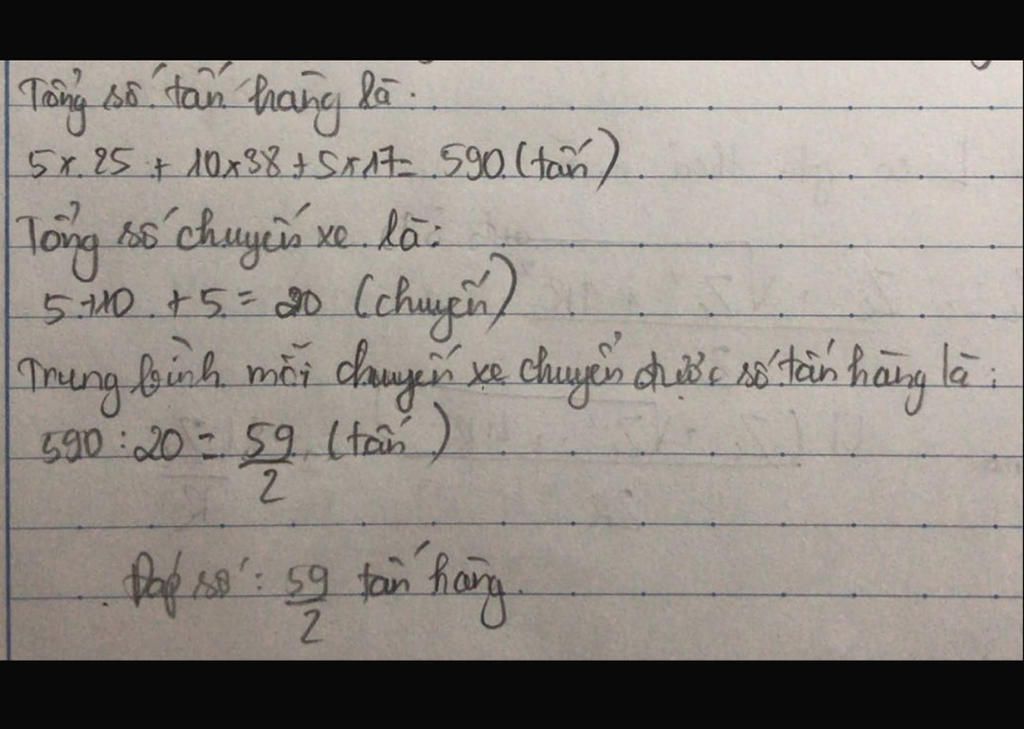 Tổng số tấn hàng là:
5 x 25 + 10 x 38 + 5 x 17 = 590 (tấn)
Tổng số chuyến xe là:
5 + 10 + 5 = 20 (chuyến)
Trung bình mỗi chuyến xe chuyển được số tấn hàng là:
590 : 20 = 59/2 (tấn)
Đáp số: 59/2 tấn hàng.